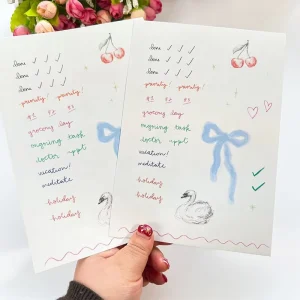 Done ✓ ✓ ✓
Done ✓ ✓ ✓
Done ✓ ✓ ✓
priority! priority!
grocery day
ongoing task
doctor appt
vacation!
meditate
holiday
holiday
Done ✓ ✓ ✓
Done ✓ ✓ ✓
Done ✓ ✓ ✓
priority! priority!
grocery day
ongoing task
doctor appt
vacation!
meditate
holiday
holiday